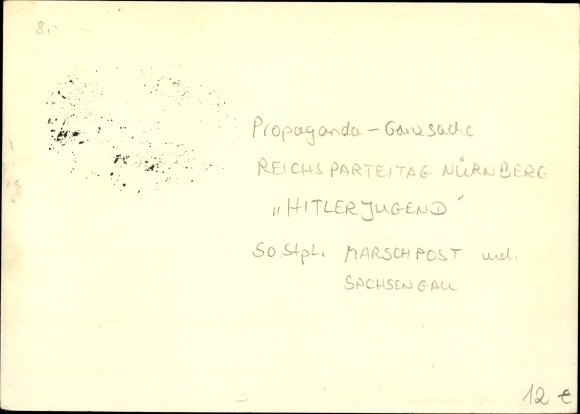 8,-
Propaganda - Ganzsache
REICHSPARTEITAG NÜRNBERG
„HITLERJUGEND"
SO.Stpl. MARSCHPOST
SACHSENGAU
12 €